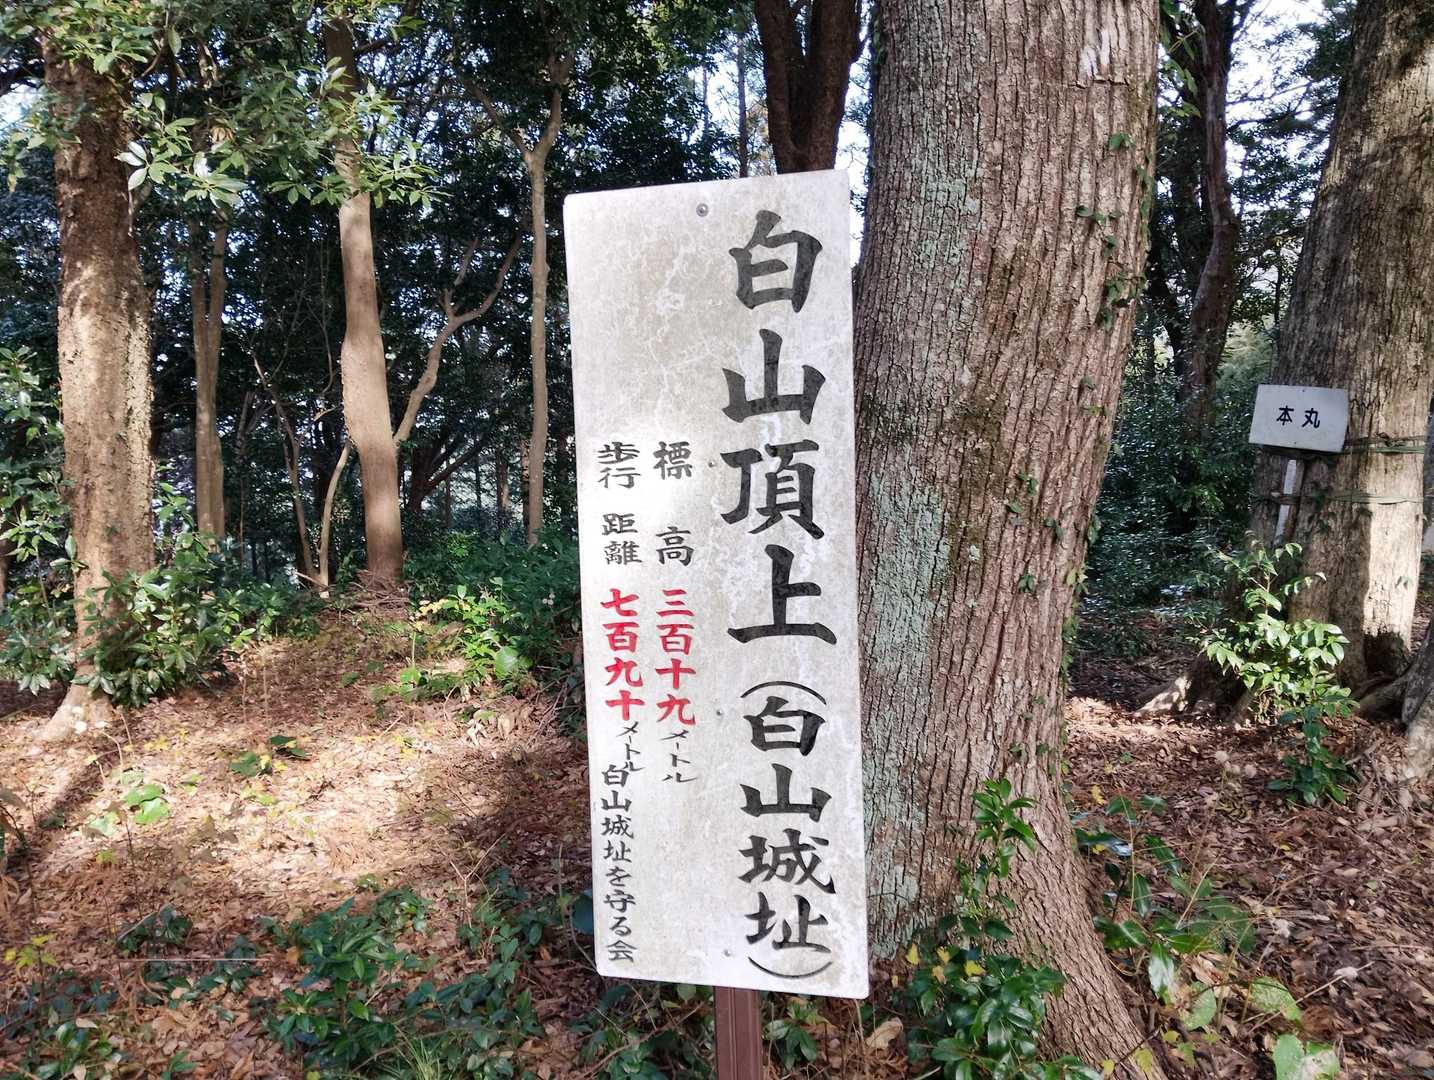 白山頂上(白山城址)
標高 三百十九メートル
歩行距離 七百九十メートル
白山城址を守る会
本丸